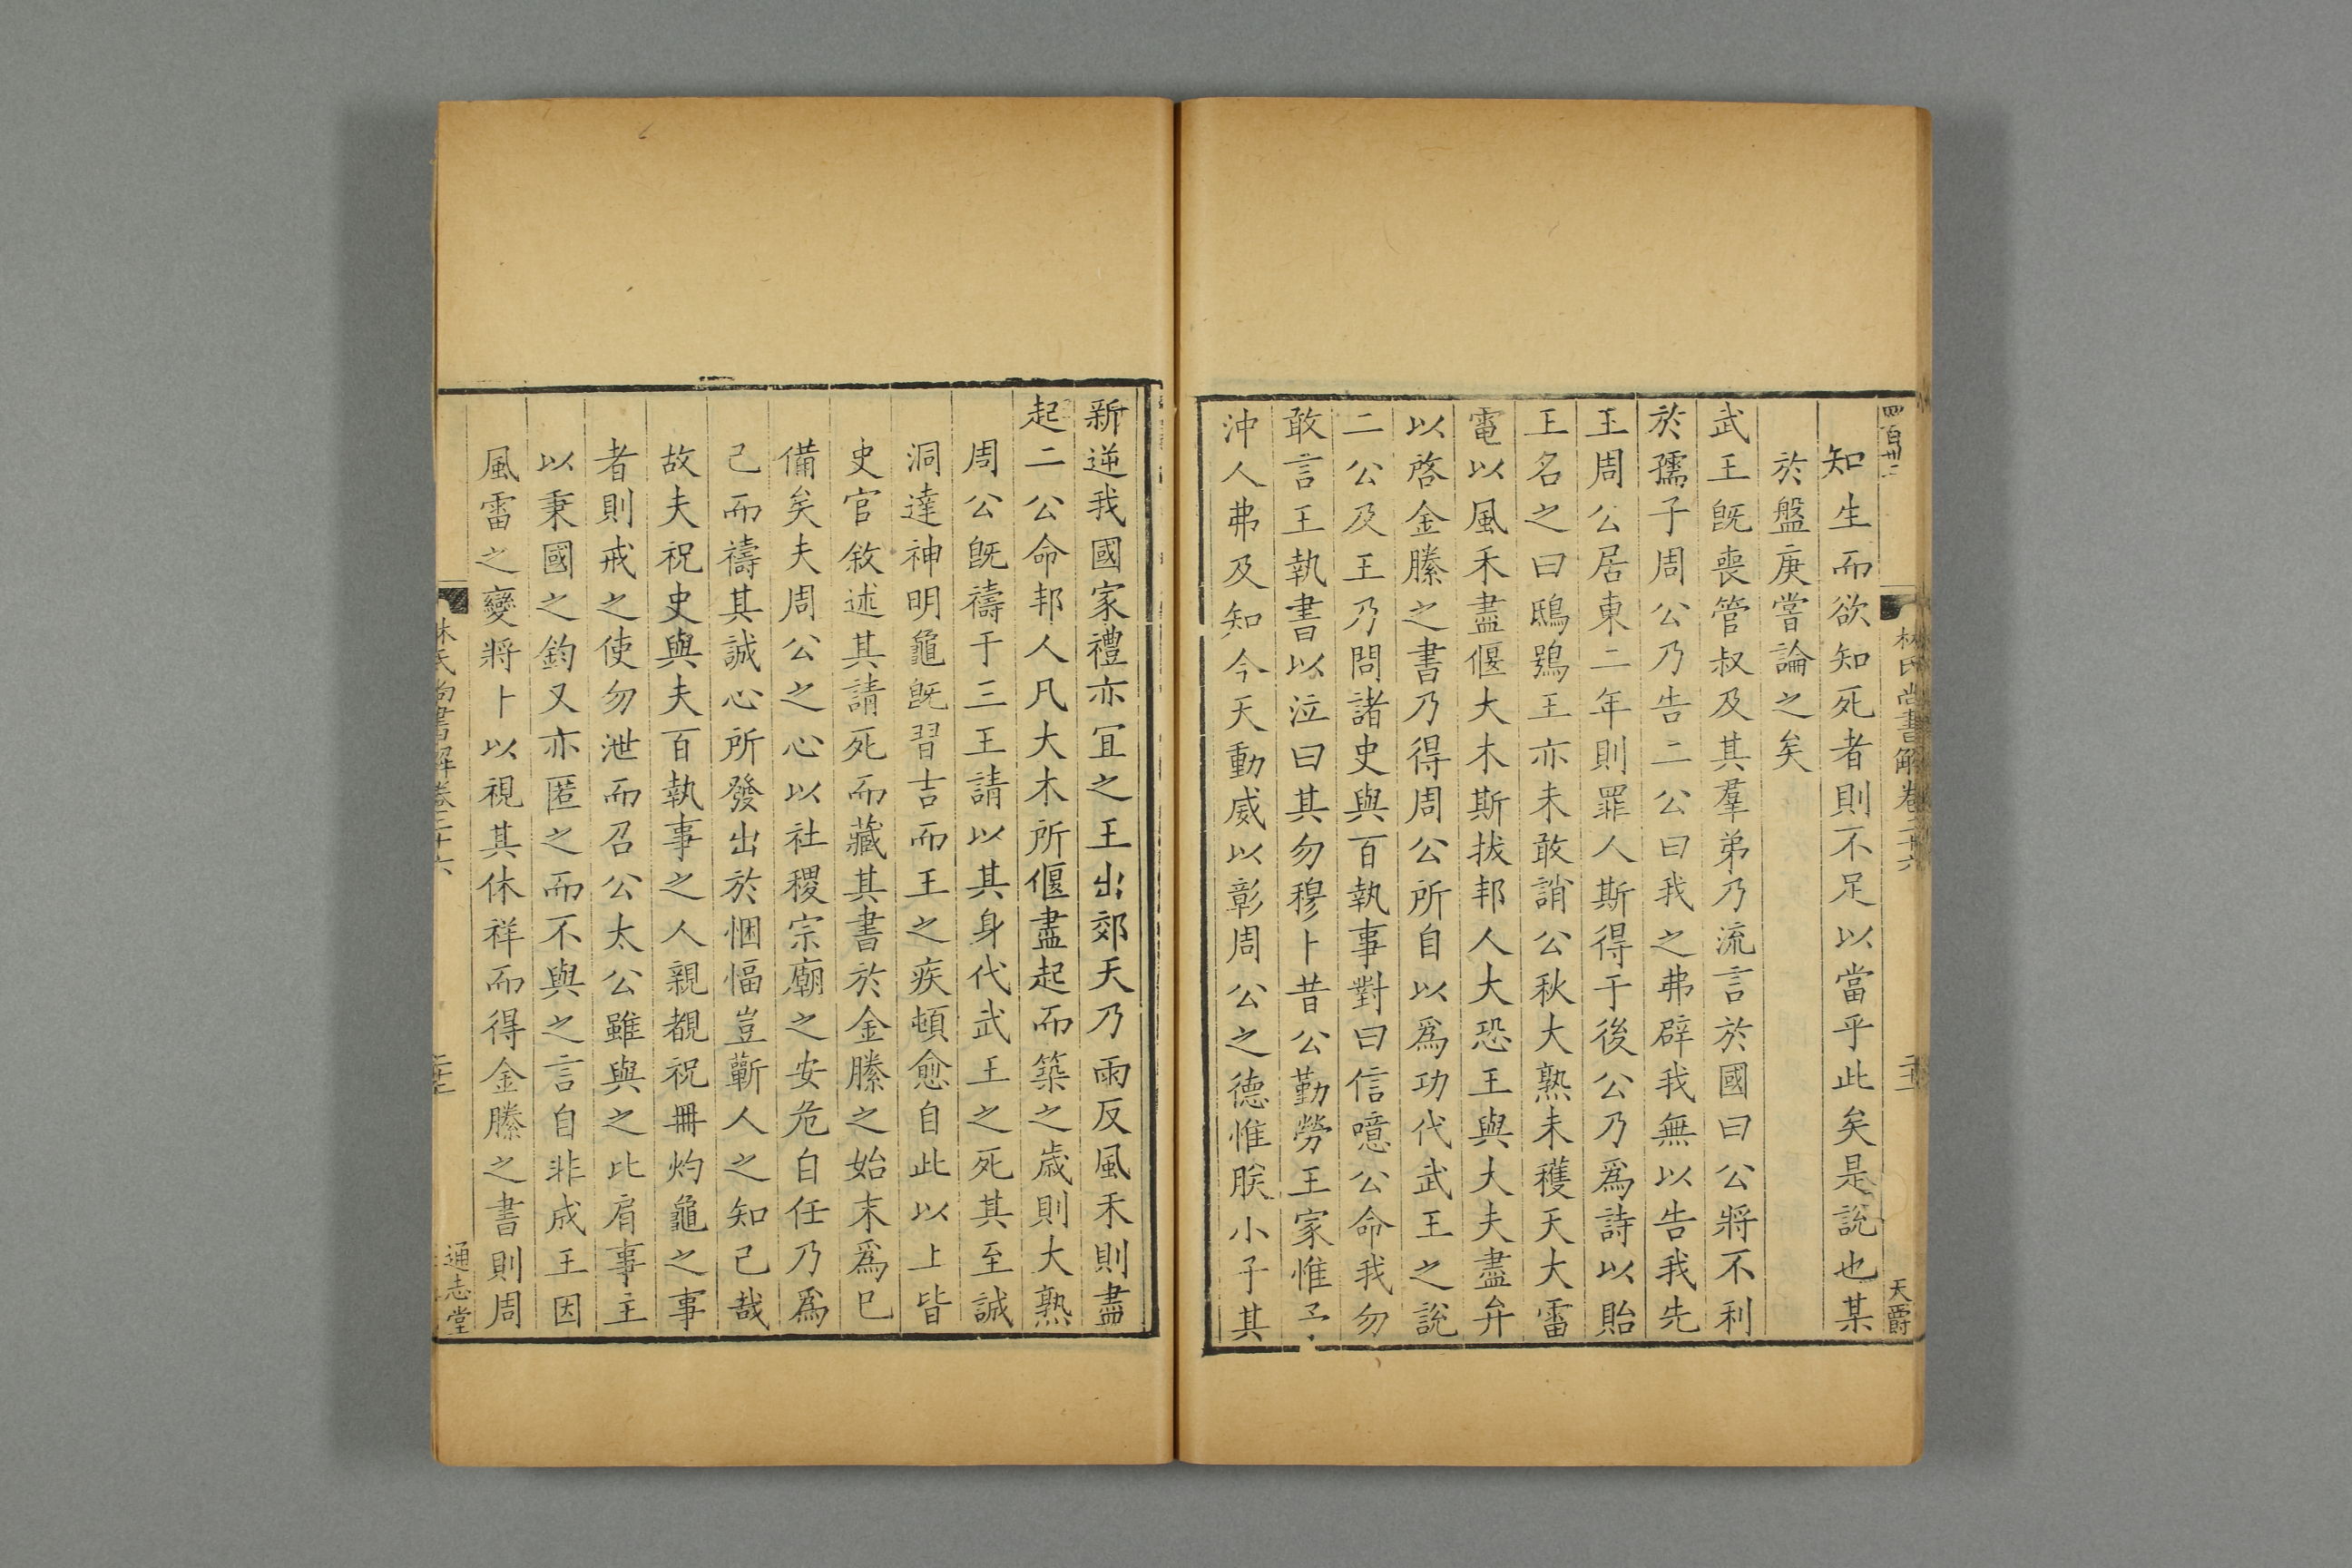 四百廿二
林氏尚書解卷二十六
天爵
知生而欲知死者則不足以當乎此矣是說也某
於盤庚嘗論之矣
武王旣喪管叔及其羣弟乃流言於國曰公將不利
於孺子周公乃告二公曰我之弗辟我無以告我先
王周公居東二年則罪人斯得于後公乃爲詩以貽
王名之曰鴟鴞王亦未敢誚公秋大熟未穫天大雷
電以風禾盡偃大木斯拔邦人大恐王與大夫盡弁
以啓金縢之書乃得周公所自以爲功代武王之說
二公及王乃問諸史與百執事對曰信噫公命我勿
敢言王執書以泣曰其勿穆卜昔公勤勞王家惟予
沖人弗及知今天動威以彰周公之德惟朕小子其
新逆我國家禮亦宜之王出郊天乃雨反風禾則盡
起二公命邦人凡大木所偃盡起而築之歲則大熟
周公旣禱于三王請以其身代武王之死其至誠
洞達神明龜旣習吉而王之疾頓愈自此以上皆
史官敘述其請死而藏其書於金縢之始末爲已
備矣夫周公之心以社稷宗廟之安危自任乃爲
己而禱其誠心所發出於悃愊豈蘄人之知己哉
故夫祝史與夫百執事之人親覩祝冊灼龜之事
者則戒之使勿泄而召公太公雖與之比肩事主
以秉國之鈞又亦匿之而不與之言自非成王因
風雷之變將卜以視其休祥而得金縢之書則周
林氏尚書解卷二十六
通志堂